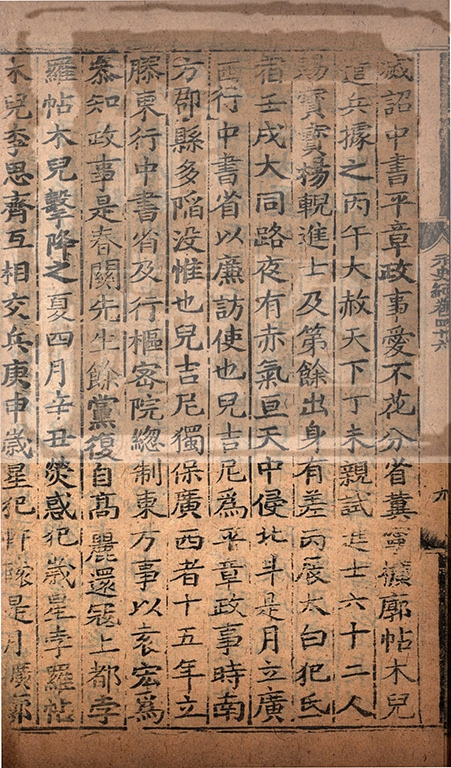 滅詔中書平章政事愛不花分省冀寧擴廓帖木兒
遣兵據之丙午大赦天下丁未親試進士六十二人
賜寶寶楊輗進士及第餘出身有差丙辰太白犯氐
宿壬戌大同路夜有赤氣亘天中侵北斗是月立廣
西行中書省以廉訪使也兒吉尼為平章政事時南
方郡縣多陷没惟也兒吉尼獨保廣西者十五年立
膠東行中書省及行樞密院緫制東方事以袁宏為
叅知政事是春關先生餘黨復自髙麗還宼上都孛
羅帖木兒擊降之夏四月辛丑熒惑犯歲星孛羅帖
木兒李思齊互相交兵庚申歲星犯軒轅是月擴廓
元史紀卷四十六
九